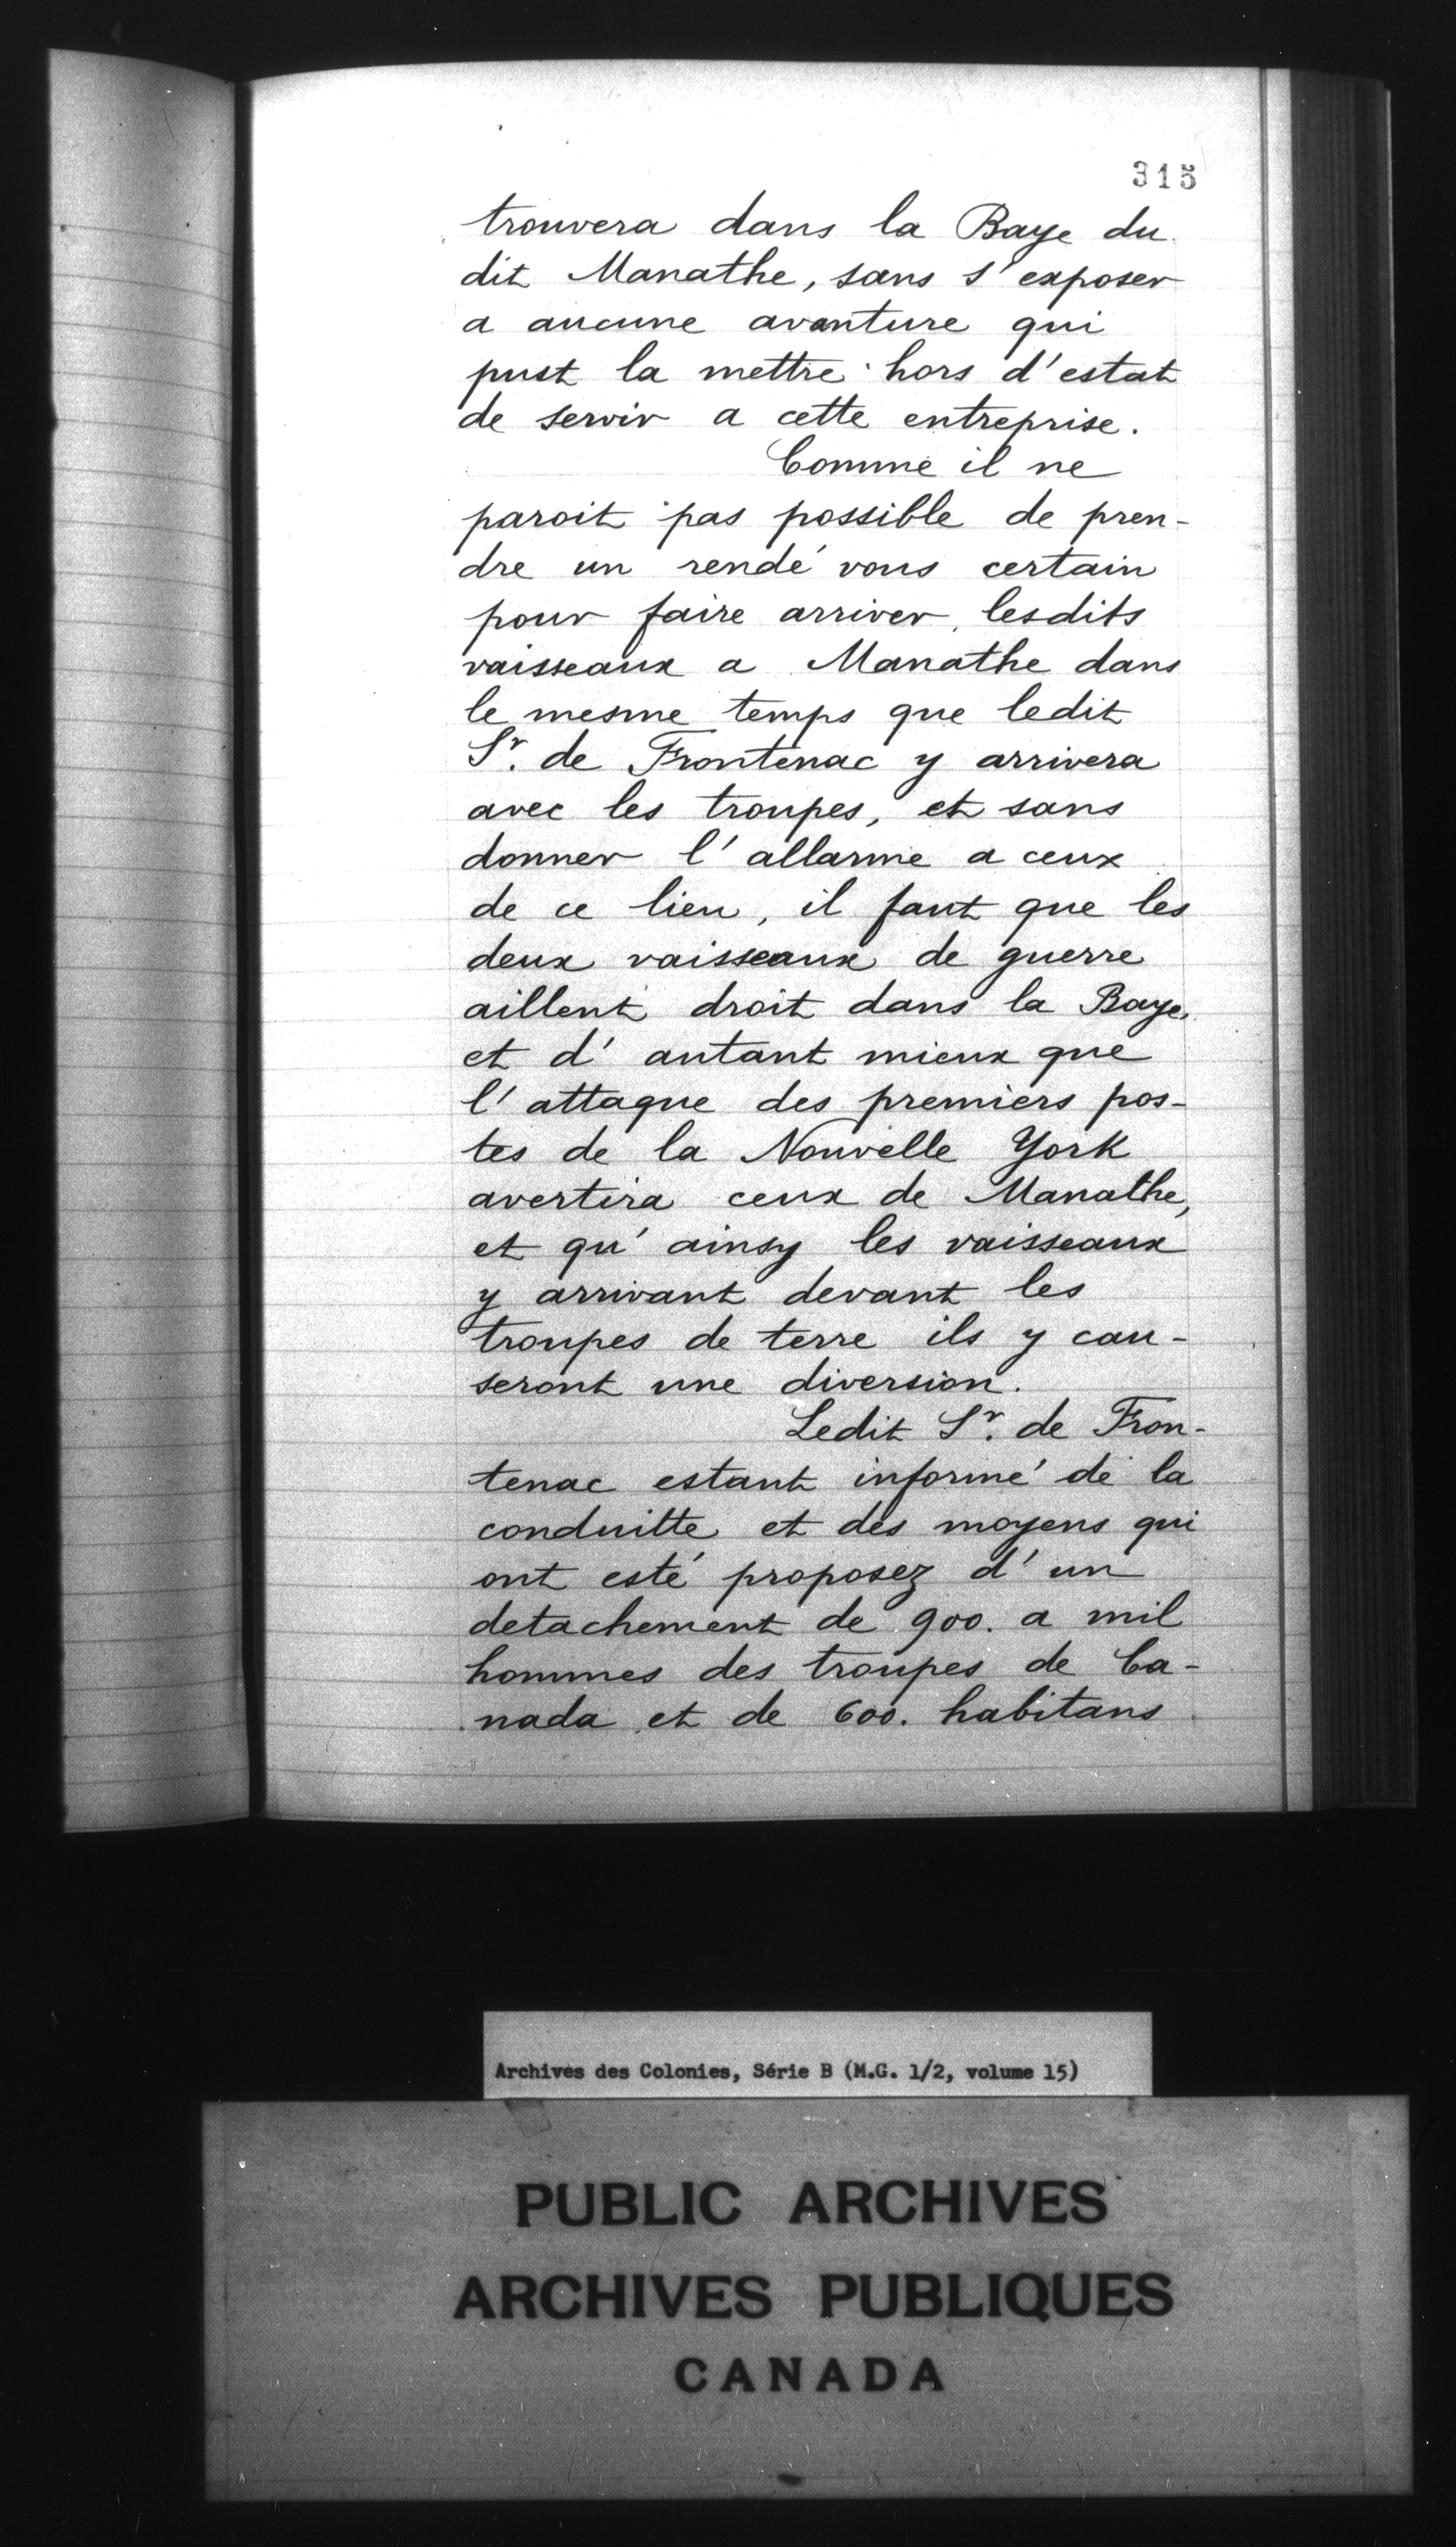 315
trouvera dans la Baye du
dit Manathe, sans s'exposer
a aucune avanture qui
pust la mettre hors d'estat
de servir a cette entreprise.
Comme il ne
paroit pas possible de pren-
dre un rendé vous certain
pour faire arriver lesdits
vaisseaux a Manathe dans
le mesme temps que ledit
Sr. de Frontenac y arrivera
avec les troupes, et sans
donner l'allarme a ceux
de ce lieu, il faut que les
deux vaisseaux de guerre
aillent droit dans la Baye,
et d'autant mieux que
l'attaque des premiers pos-
tes de la Nouvelle York
avertira ceux de Manathe,
et qu'ainsy les vaisseaux
y arrivant devant les
troupes de terre ils y cau-
seront une diversion.
Ledit Sr. de Fron-
tenac estant informé de la
conduitte et des moyens qui
ont esté proposez d'un
detachement de 900. a mil
hommes des troupes de Ca-
nada et de 600. habitans
Archives des Colonies, Série B (M.G. 1/2, volume 15)
PUBLIC ARCHIVES
ARCHIVES PUBLIQUES
CANADA